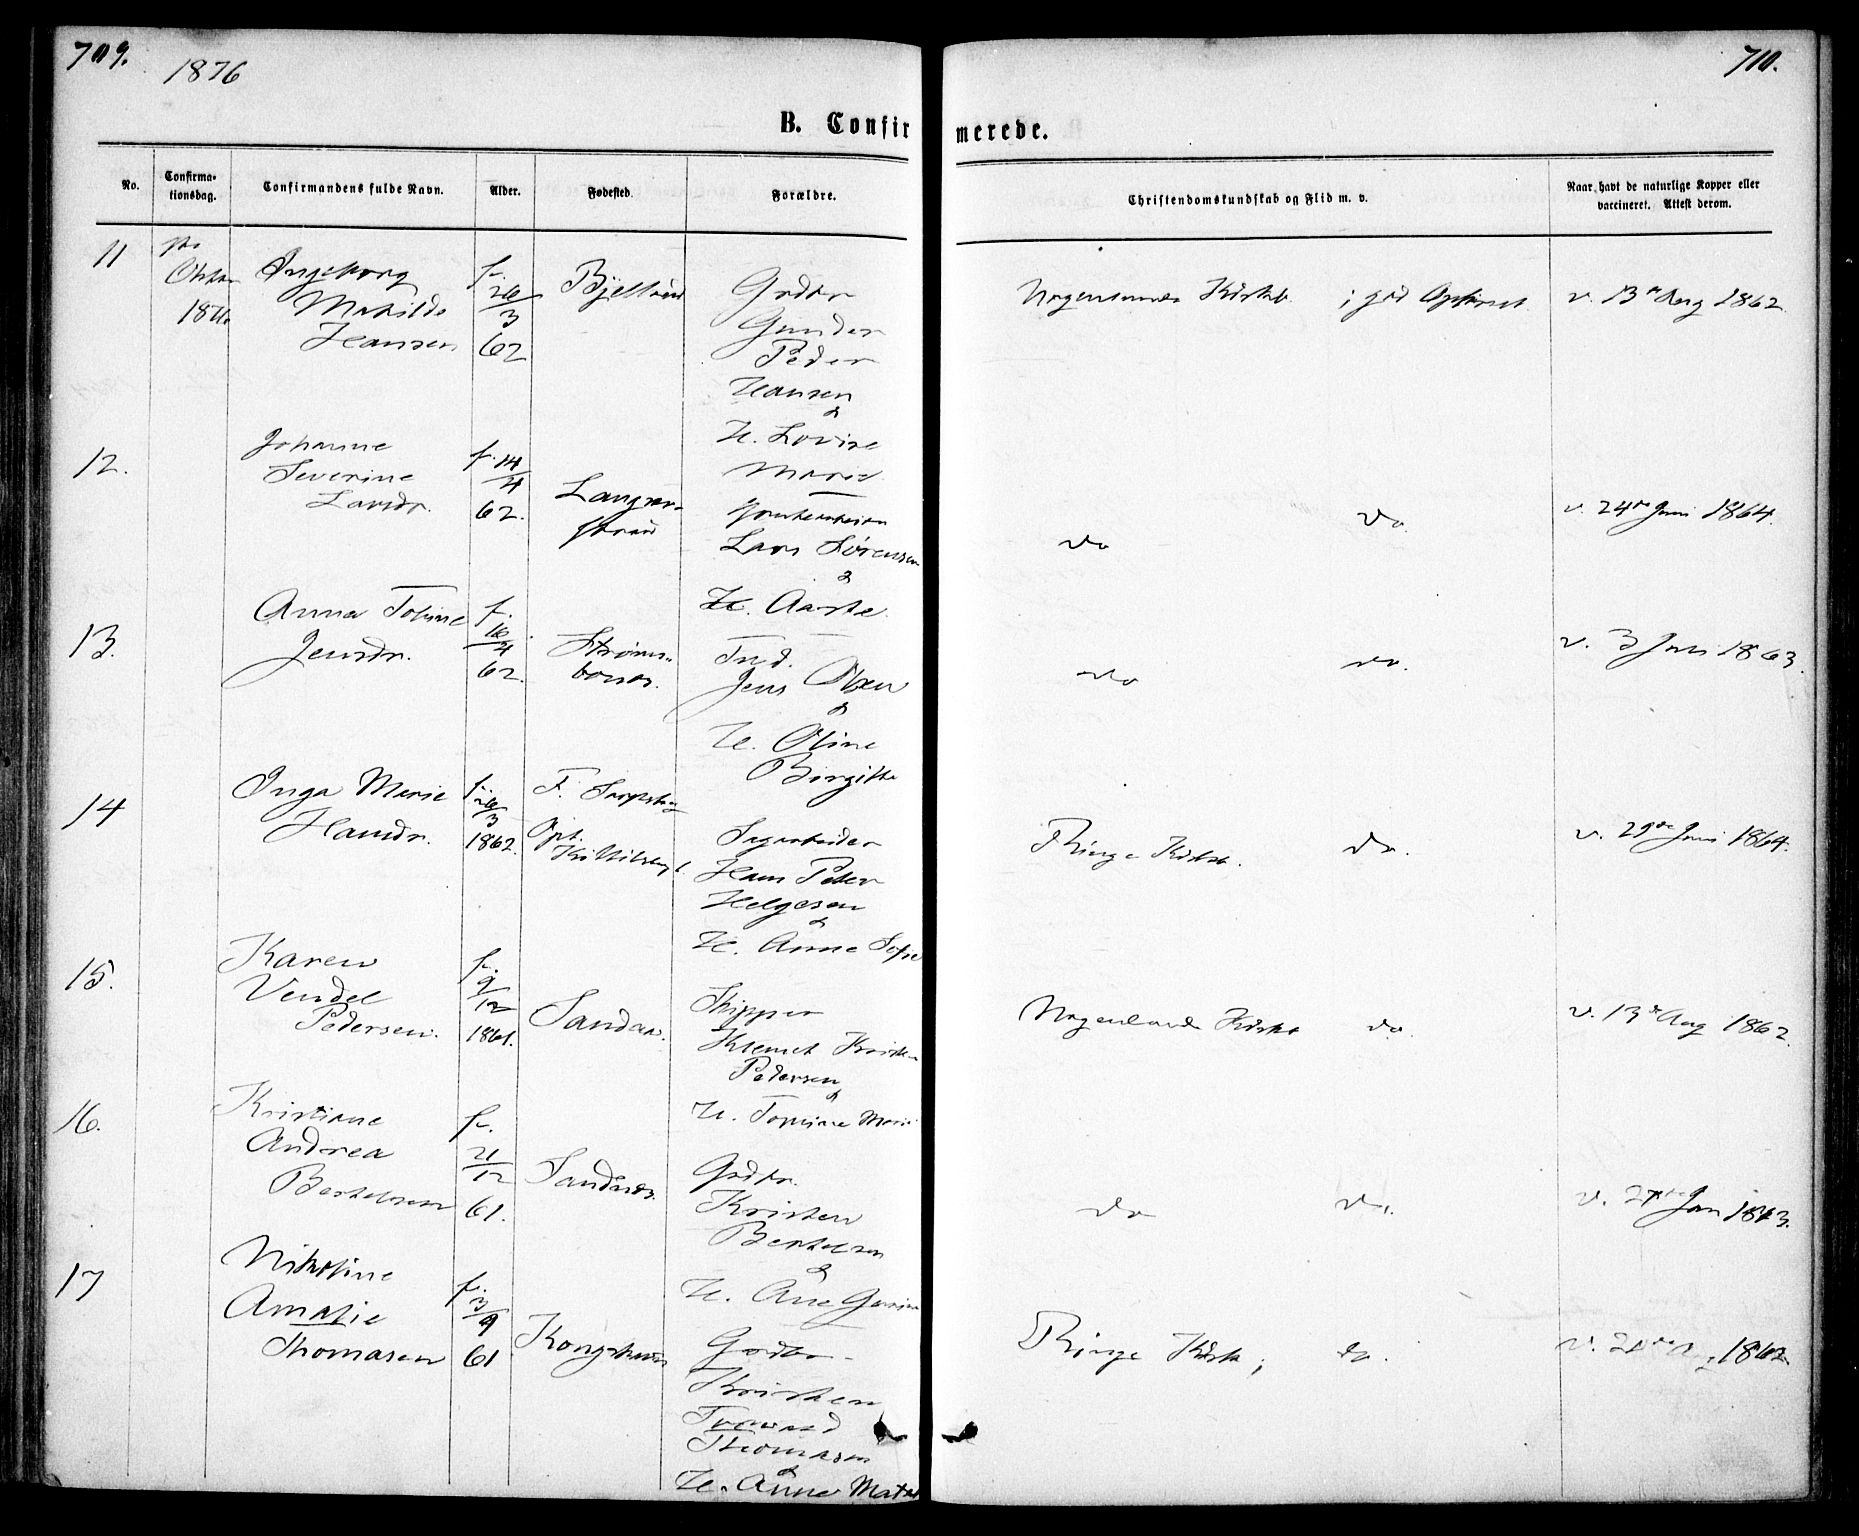 709.
1876
710.
B. Confirmerede.
No.
Confirma-
tionsdag.
Confirmandens fulde Navn.
Alder.
Fødested.
Forældre.
Christendomskundskab og Flid m. v.
Naar havt de naturlige Kopper eller
vaccineret. Attest derom.
11
1ste
Oktbr
1876
Ingeborg
Mathilde
Hansen
f.
26/3
62
Grdbr
Gunder
Peder
Hansen
&
H. Lovise
Marie
Kdskb. ; god Opførsel
v. 13de Aug 1862
12.
Johanne
Severine
Larsdr.
f. 14/4
62.
Lars Sørensen
&
H. Aaste
do
do
v. 24de Juni 1864.
13.
Anna Tobine
Jensdr.
f.
16/4
62.
Ind.
Jens Olsen
&
H. Oline
Birgitte
do
do.
v. 3 1863.
14
Inga Marie
Hansdr.
f.
26/3
1862.
F. Sarpsborg
Opf.
Sagarbeider
Hans Peter
Helgesen
&
H. Anne Sofie
Ringe Kdskb.
do.
v. 29de Juni 1864.
15.
Karen
Vendel
Pedersen.
f.
9/12
1861.
Skipper
Pedersen
&
H. Tomine Marie
Nogenlunde Kdskb
do.
v. 13de Aug 1862.
16.
Kristiane
Andrea
Bertelsen
f.
21/12
61.
Sandnes.
Grdbr.
Kristen
Bertelsen
&
H. Ane
do
do.
v.
17
Nikoline
Amalie
Thomasen
f.
3/9
61
Kongshavn
Gardbr.
Kristen
Thomasen
&
H. Anne
Ringe Kdskb ;
do.
v. 1862.